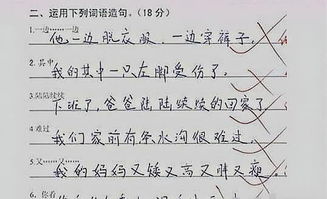 二、运用下列词语造句。(18分)
1.一边……一边
他一边脱衣服，一边穿裤子。
2. 其中
我的其中一只左脚受伤了。
3.陆陆续续
下班了，爸爸陆陆续续的回家了
4 难过
我们家前有条水沟很难过。
5.又……又……
我的妈妈又矮又高又胖又瘦。
6. 你看